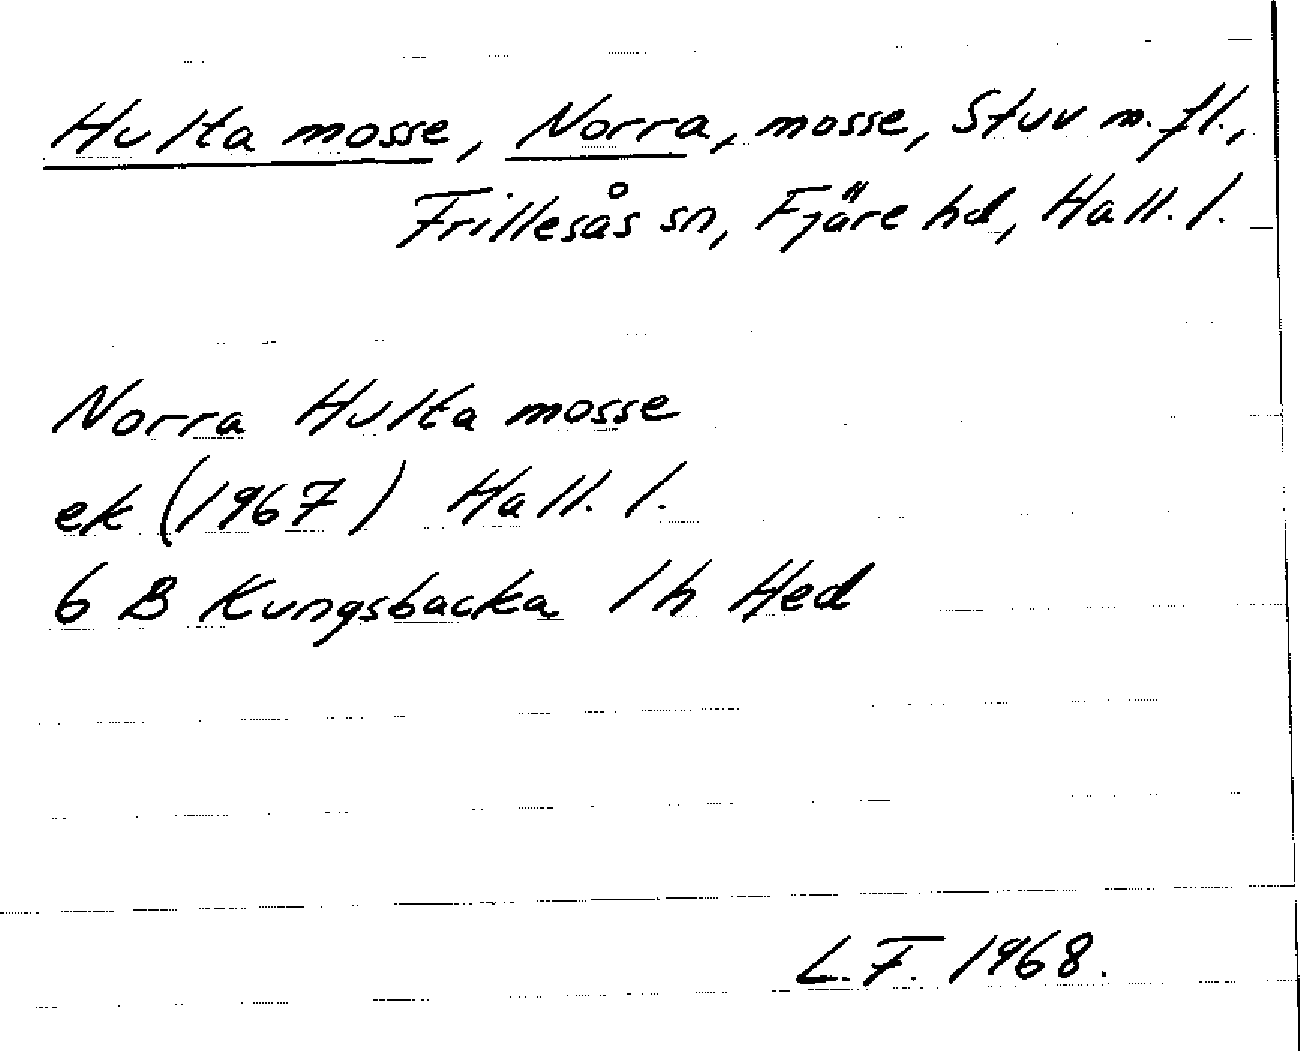 Hulta mosse, Norra, mosse, Stuv m. fl.,
Frillesås sn, Fjäre hd, Hall. l.
Norra Hulta mosse
ek (1967) Hall. l.
6 B Kungsbacka 1 h Hed
L.F. 1968.